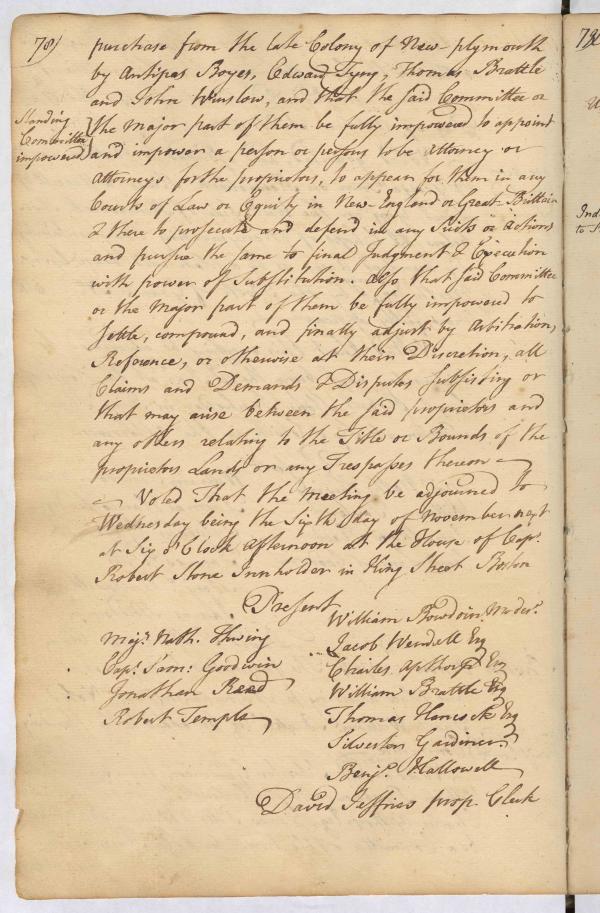 78)
purchase from the late Colony of New-plymouth
by Antipas Boyes, Edward Tyng, Thomas Brattle
and John Winslow, and that the said Committee or
Standing
Committee
impowered
the major part of them be fully impowered to appoint
and impower a person or persons to be Attorney or
Attorneys for the proprietors, to appear for them in any
Courts of Law or Equity in New England or Great Brittain
& there to prosecute and defend in any Suits or Actions
and pursue the same to final Judgment & Execution
with power of Substitution. Also that said Committee
or the Major part of them be fully impowered to
settle, compound, and finally adjust by Arbitration,
Reference, or otherwise at their Discretion, all
Claims and Demands & Disputes subsisting or
that may arise between the said proprietors and
any others relating to the Title or Bounds of the
proprietors Lands or any Trespasses thereon
Voted That the meeting be adjourned to
Wednesday being the Sixth day of November next
at Six o'Clock afternoon at the House of Capt.
Robert Stone Innholder in King Street Boston
Present
William Bowdoin Moder.
Majr. Nath. Thwing
Jacob Wendell Esq
Capt. Sam: Goodwin
Charles Apthorp Esq
Jonathan Reed
William Brattle Esq
Robert Temple
Thomas Hancock Esq
Silvester Gardiner
Benja. Hallowell
David Jeffries prop. Clerk
Ind
to